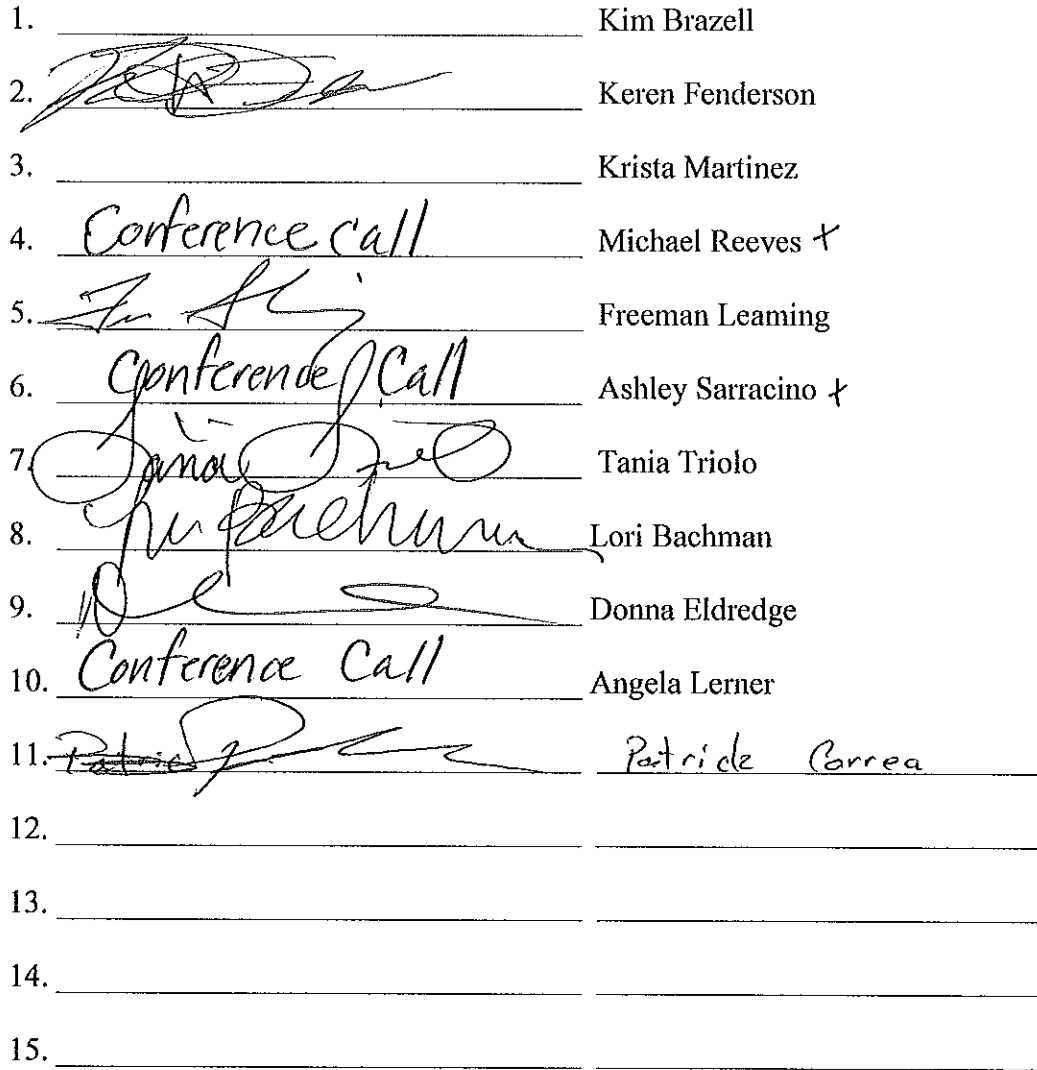 1. Kim Brazell
2. Keren Fenderson
3. Krista Martinez
4. Conference Call Michael Reeves +
5. Freeman Leaming
6. Conference Call Ashley Sarracino +
7. Tania Triolo
8. Lori Bachman
9. Donna Eldredge
10. Conference Call Angela Lerner
11. Patrick Correa
12.
13.
14.
15.